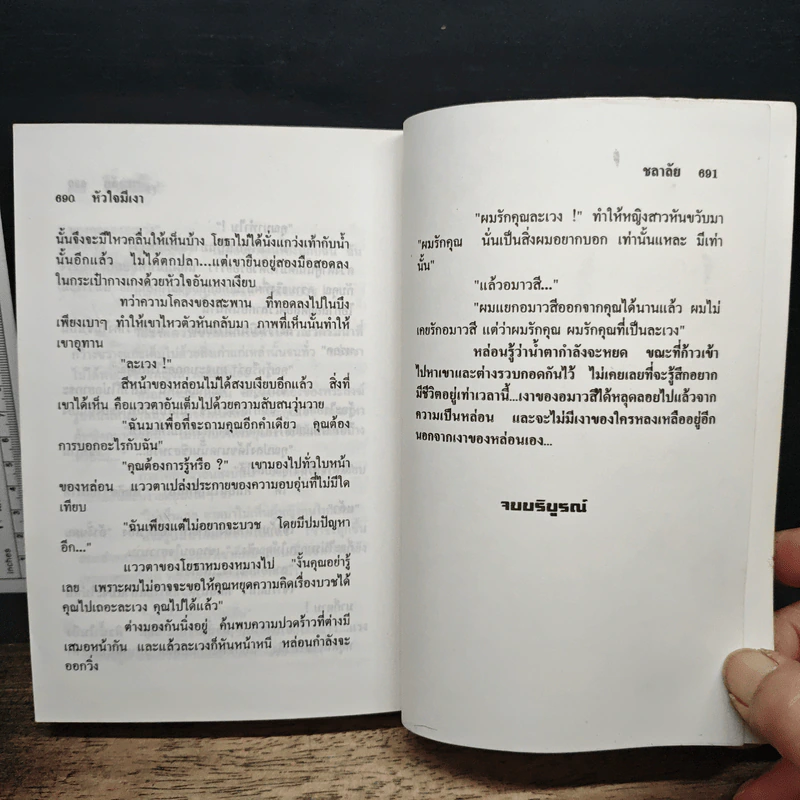 690 หัวใจมีเงา
นั้นจึงจะมีไหวคลื่นให้เห็นบ้าง โยธาไม่ได้นั่งแกว่งเท้ากับน้ำ
นั้นอีกแล้ว ไม่ได้ตกปลา...แต่เขายืนอยู่สองมือสอดลง
ในกระเป๋ากางเกงด้วยหัวใจอันเหงาเงียบ
ทว่าความโคลงของสะพาน ที่ทอดลงไปในบึง
เพียงเบาๆ ทำให้เขาไหวตัวหันกลับมา ภาพที่เห็นนั้นทำให้
เขาอุทาน
"ละเวง !"
สีหน้าของหล่อนไม่ได้สงบเงียบอีกแล้ว สิ่งที่
เขาได้เห็น คือแววตาอันเต็มไปด้วยความสับสนวุ่นวาย
"ฉันมาเพื่อที่จะถามคุณอีกคำเดียว คุณต้อง
การบอกอะไรกับฉัน"
"คุณต้องการรู้หรือ ?" เขามองไปทั่วใบหน้า
ของหล่อน แววตาเปล่งประกายของความอบอุ่นที่ไม่มีใด
เทียบ
"ฉันเพียงแต่ไม่อยากจะบวช โดยมีปมปัญหา
อีก..."
แววตาของโยธาหมองหมางไป "งั้นคุณอย่ารู้
เลย เพราะผมไม่อาจจะขอให้คุณหยุดความคิดเรื่องบวชได้
คุณไปเถอะละเวง คุณไปได้แล้ว"
ต่างมองกันนิ่งอยู่ ค้นพบความปวดร้าวที่ต่างมี
เสมอหน้ากัน และแล้วละเวงก็หันหน้าหนี หล่อนกำลังจะ
ออกวิ่ง
ชลาลัย 691
"ผมรักคุณละเวง !" ทำให้หญิงสาวหันขวับมา
"ผมรักคุณ นั่นเป็นสิ่งผมอยากบอก เท่านั้นแหละ มีเท่า
นั้น"
"แล้วอมาวสี..."
"ผมแยกอมาวสีออกจากคุณได้นานแล้ว ผมไม่
เคยรักอมาวสี แต่ว่าผมรักคุณ ผมรักคุณที่เป็นละเวง"
หล่อนรู้ว่าน้ำตากำลังจะหยด ขณะที่ก้าวเข้า
ไปหาเขาและต่างรวบกอดกันไว้ ไม่เคยเลยที่จะรู้สึกอยาก
มีชีวิตอยู่เท่าเวลานี้...เงาของอมาวสีได้หลุดลอยไปแล้วจาก
ความเป็นหล่อน และจะไม่มีเงาของใครหลงเหลืออยู่อีก
นอกจากเงาของหล่อนเอง...
จบบริบูรณ์
inches